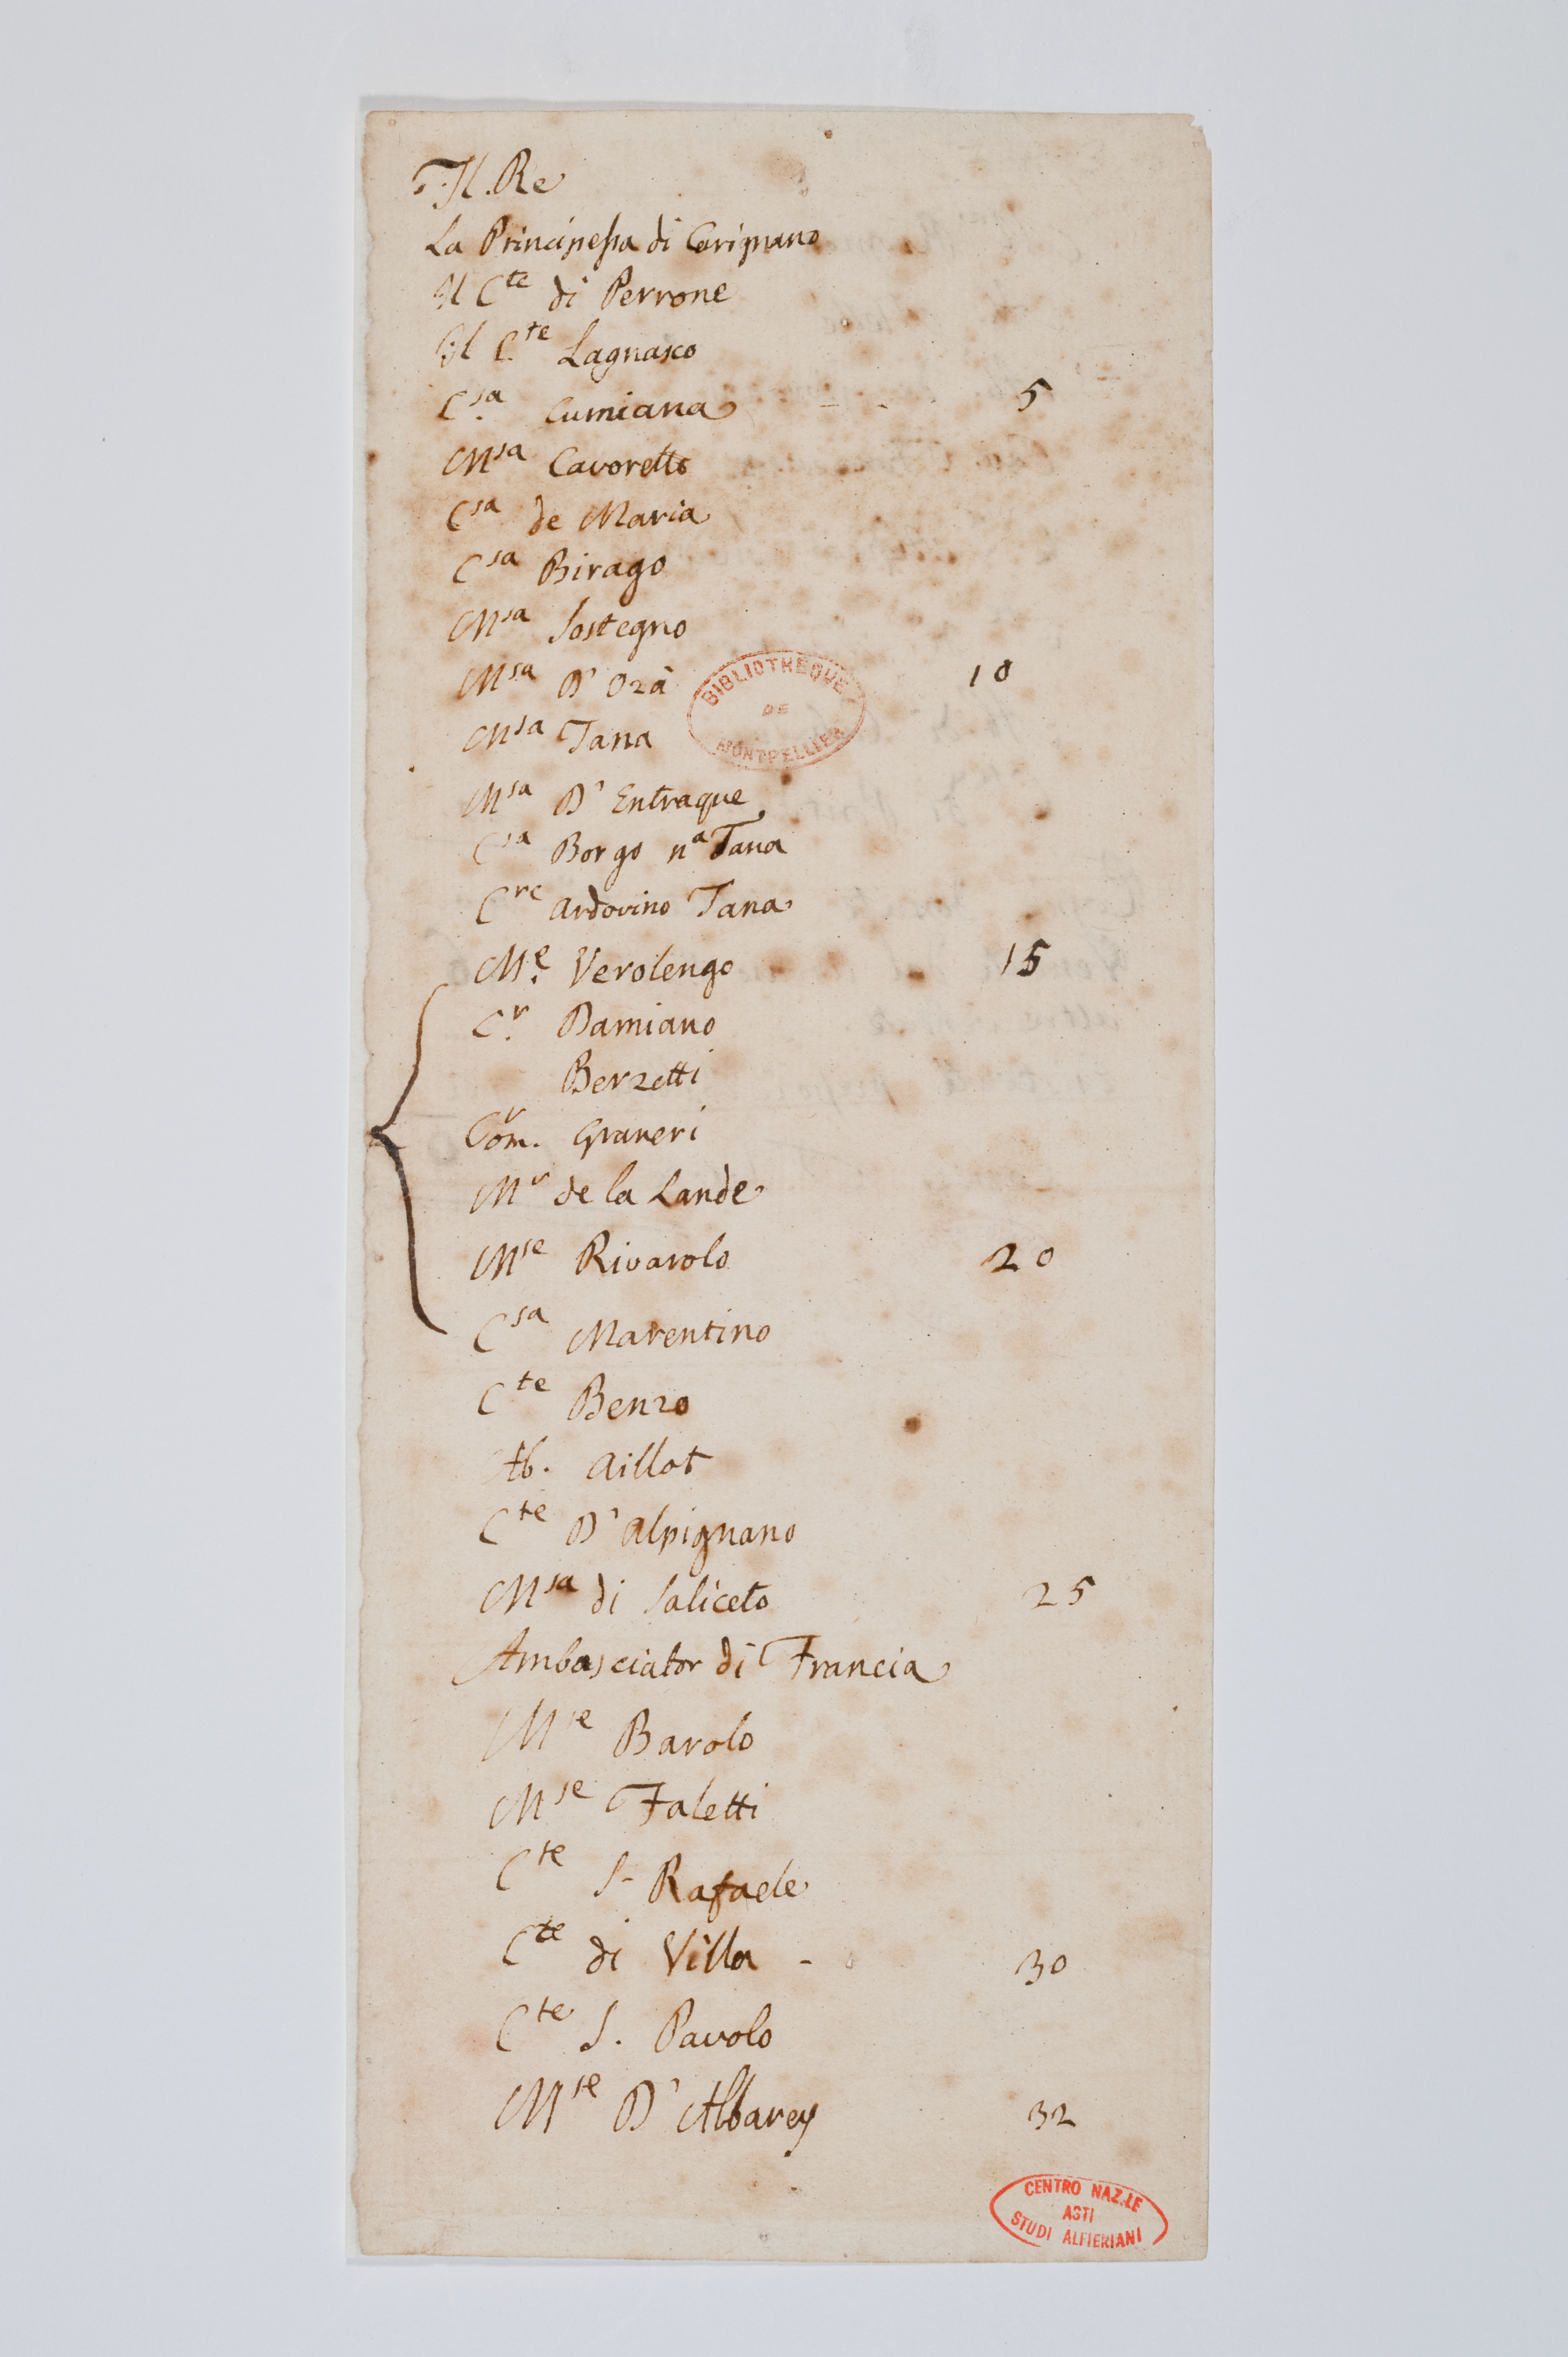 Il. Re
La Principessa di Carignano
Il Cte di Perrone
Il C.te Lagnasco
C.sa Cumiana - - - 5
Msa Cavoretto
Csa de Maria
Csa Birago
Msa Sostegno
Msa D'Ozà 10
Msa Tana
Msa D'Entraque
Csa Borgo na Tana
Cre Ardovino Tana
M.e Verolengo 15
C.r Damiano
Berzetti
Com. Graneri
Mr de la Lande
Mse Rivarolo 20
Csa Marentino
Cte Benzo
Ab. Aillot
Cte D'Alpignano
Msa di Saliceto 25
Ambasciator di Francia
Mse Barolo
Mse Faletti
Cte S- Rafaele
Cte di Villa - 30
Cte S. Pavolo
Mse D'Albarey 32
BIBLIOTHEQUE
DE
MONTPELLIER
CENTRO NAZ.LE
ASTI
STUDI ALFIERIANI